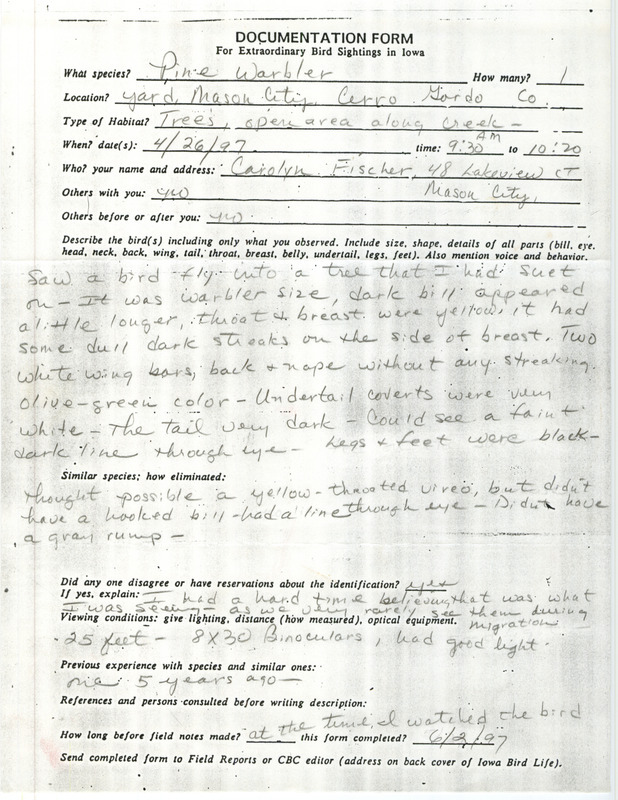 DOCUMENTATION FORM
For Extraordinary Bird Sightings in Iowa
What species? Pine Warbler How many? 1
Location? yard, Mason City, Cerro Gordo Co.
Type of Habitat? Trees, open area along creek -
When? date(s): 4/26/97 time: 9:30 AM to 10:20
Who? your name and address: Carolyn Fischer, 48 Lakeview CT
Mason City,
Others with you:
Others before or after you:
Describe the bird(s) including only what you observed. Include size, shape, details of all parts (bill, eye,
head, neck, back, wing, tail, throat, breast, belly, undertail, legs, feet). Also mention voice and behavior.
Saw a bird fly into a tree that I had suet
on - It was warbler size, dark bill appeared
a little longer, throat & breast were yellow, it had
some dull dark streaks on the side of breast. Two
white wing bars, back & nape without any streaking.
Olive-green color - Undertail coverts were very
white - The tail very dark - Could see a faint
dark line through eye - Legs & feet were black -
Similar species; how eliminated:
thought possible a yellow-throated vireo, but didn't
have a hooked bill - had a line through eye - Didn't have
a gray rump -
Did any one disagree or have reservations about the identification? yes
If yes, explain: I had a hard time believing that was what
I was seeing - as we very rarely see them during
migration
Viewing conditions: give lighting, distance (how measured), optical equipment.
25 feet - 8X30 Binoculars, had good light.
Previous experience with species and similar ones:
one 5 years ago -
References and persons consulted before writing description:
How long before field notes made? at the time I watched the bird this form completed? 6/2/97
Send completed form to Field Reports or CBC editor (address on back cover of Iowa Bird Life).